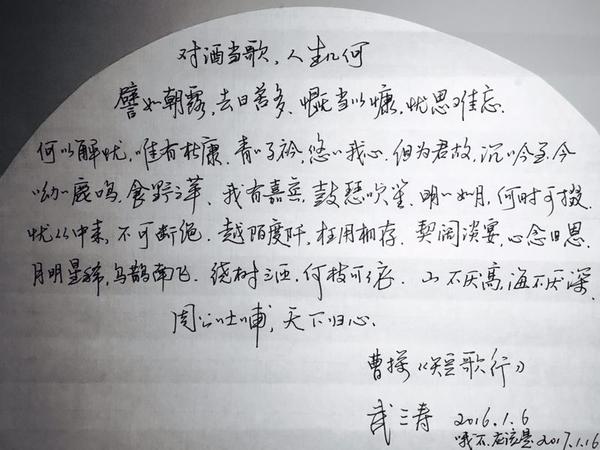 对酒当歌,人生几何
譬如朝露,去日苦多.慨当以慷,忧思难忘.
何以解忧,唯有杜康.青々子衿,悠々我心.但为君故,沉吟至今
呦々鹿鸣,食野之苹.我有嘉宾,鼓瑟吹笙.明々如月,何时可掇.
忧从中来,不可断绝.越陌度阡,枉用相存.契阔谈宴,心念旧恩.
月明星稀,乌鹊南飞.绕树三匝,何枝可依.山不厌高,海不厌深.
周公吐哺,天下归心.
曹操《短歌行》
武涛 2016.1.6
哦不,应该是2017.1.16